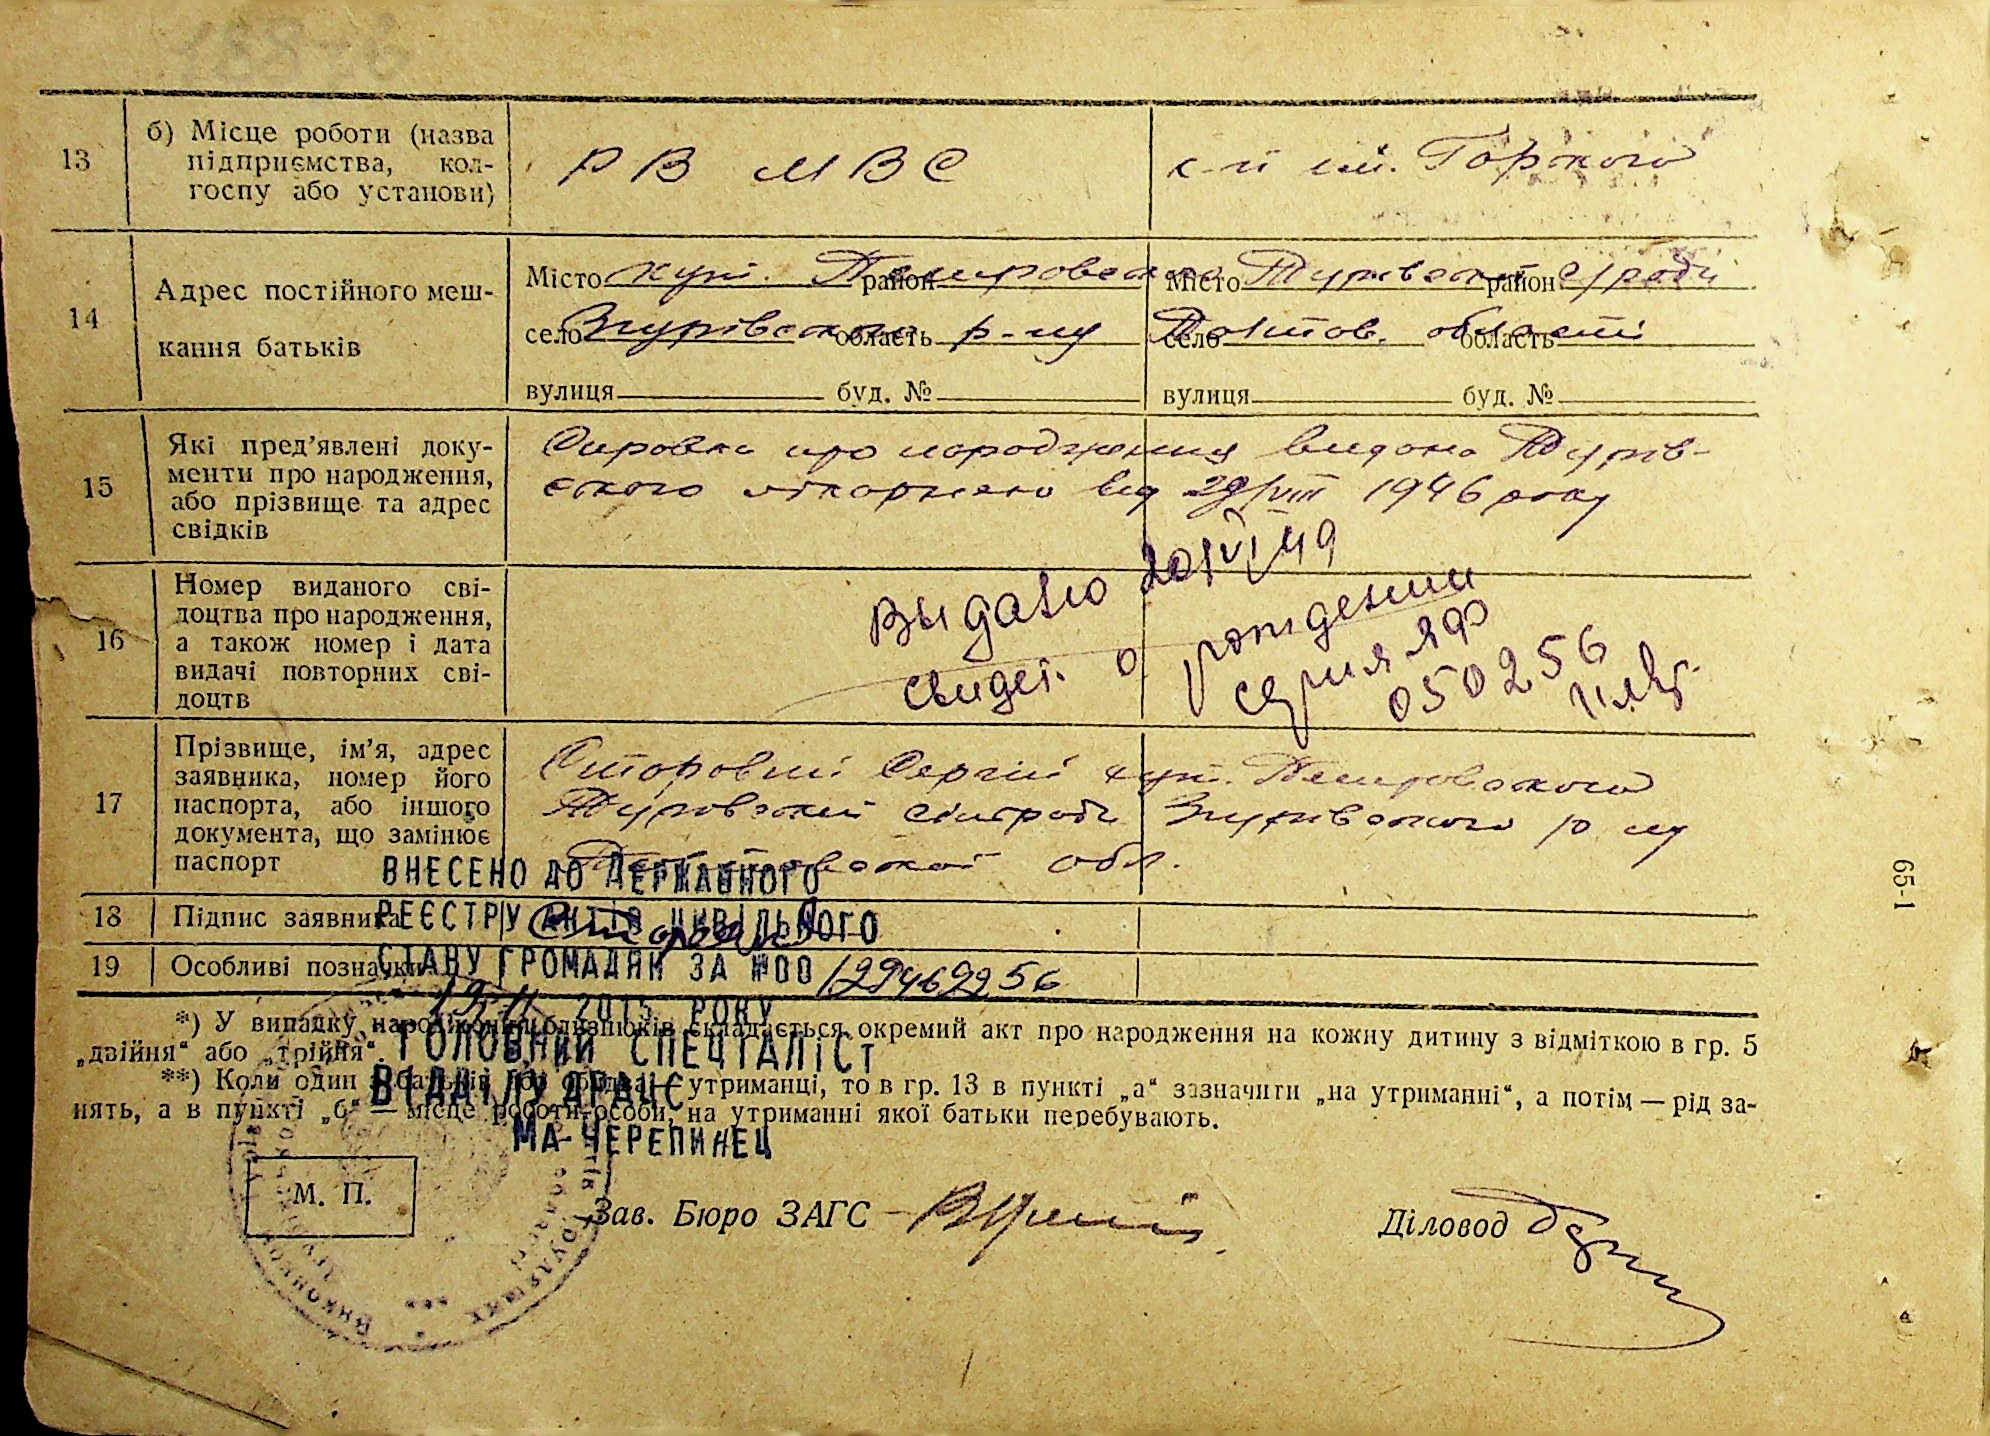 13
б) Місце роботи (назва
підприємства, кол-
госпу або установи)
РВ МВС
к-п ім. Горкого
14
Адрес постійного меш-
кання батьків
Місто хут. район
село Згурівского область р-ну
вулиця буд. №
Місто район с/ради
село Полтов. область області
вулиця буд. №
15
Які пред’явлені доку-
менти про народження,
або прізвище та адрес
свідків
Справка про народження видана
ского лікарнею від 29/VIII 1946 року
16
Номер виданого сві-
доцтва про народження,
а також номер і дата
видачі повторних сві-
доцтв
Выдано 20/VI 49
свидет. о рождении
серия ЯФ
050256
17
Прізвище, ім’я, адрес
заявника, номер його
паспорта, або іншого
документа, що замінює
паспорт
Сергій хут.
сільради Згурівского р-ну
обл.
18
Підпис заявника
19
Особливі позначки
ВНЕСЕНО ДО ДЕРЖАВНОГО
РЕЄСТРУ АКТІВ ЦИВІЛЬНОГО
СТАНУ ГРОМАДЯН ЗА №00129469956
2015 РОКУ
ГОЛОВНИЙ СПЕЦІАЛІСТ
ВІДДІЛУ ДРАЦС
МА ЧЕРЕПИНЕЦ
*) У випадку народження близнюків складається окремий акт про народження на кожну дитину з відміткою в гр. 5
„двійня“ або „трійня“.
**) Коли один з батьків або обидва — утриманці, то в гр. 13 в пункті „а“ зазначити „на утриманні“, а потім — рід за-
нять, а в пункті „б“ — місце роботи особи, на утриманні якої батьки перебувають.
М. П.
Зав. Бюро ЗАГС
Діловод
65-1